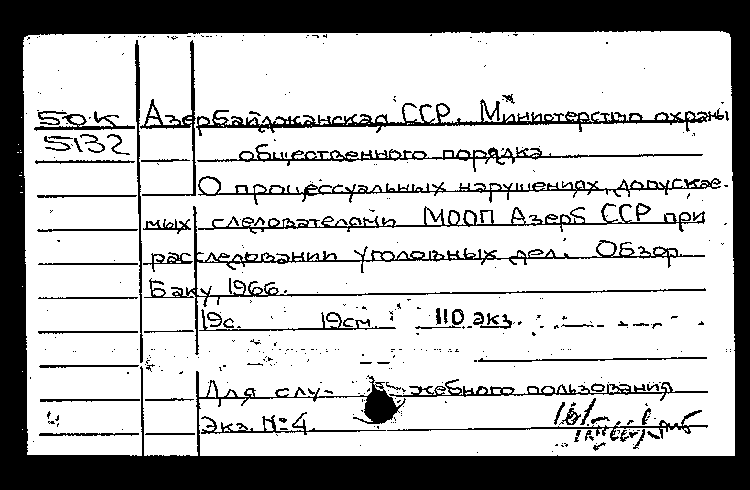 50К Азербайджанская ССР. Министерство охраны
5132 общественного порядка.
О процессуальных нарушениях, допускае-
мых следователями МООП Азерб ССР при
расследовании уголовных дел. Обзор
Баку, 1966.
19с. 19см. 110 экз.
Для слу- жебного пользования
Экз. №4.
ч